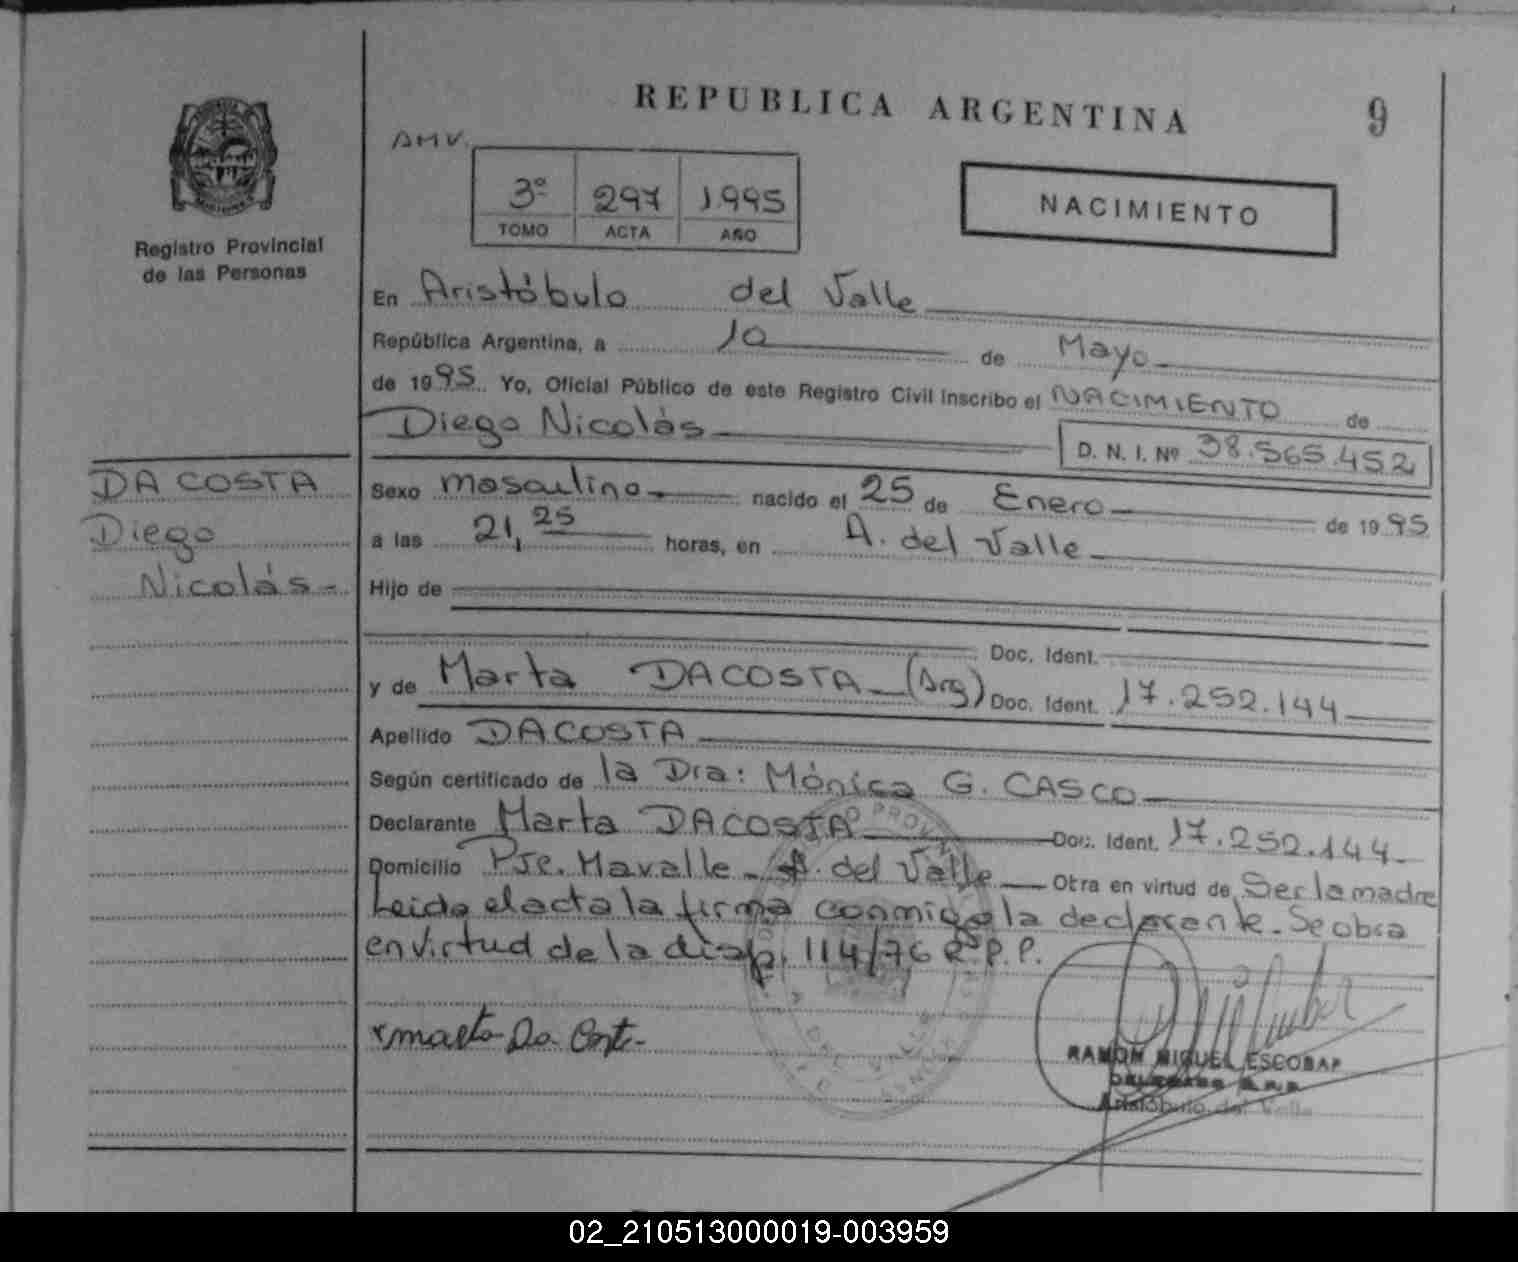 REPUBLICA ARGENTINA
9
AMV.
3º 297 1.995
TOMO ACTA AÑO
NACIMIENTO
Registro Provincial
de las Personas
En Aristóbulo del Valle
República Argentina, a 10 de Mayo
de 1995. Yo, Oficial Público de este Registro Civil inscribo el NACIMIENTO de
Diego Nicolás
D. N. I. Nº 38.565.452
DA COSTA
Diego
Nicolás-
Sexo masculino nacido el 25 de Enero de 1995
a las 21,25 horas, en A. del Valle
Hijo de
Doc. Ident.
y de Marta DACOSTA (Arg) Doc. Ident. 17.252.144
Apellido DACOSTA
Según certificado de la Dra: Mónica G. CASCO
Declarante Marta DACOSTA Doc. Ident. 17.252.144-
Domicilio Pje. Mavalle - A. del Valle Otra en virtud de Ser la madre
Leida el acta la firma conmigo la declarante. Se obra
en virtud de la disp. 114/76 R.P.P.
RAMON MIGUEL ESCOBAR
DELEGADO R.P.P.
Aristóbulo del Valle
02_210513000019-003959